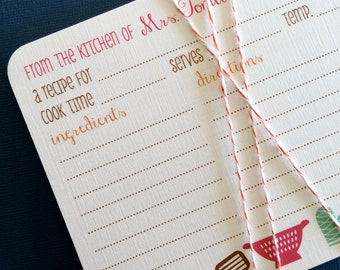 FROM THE KITCHEN OF Mrs.
a recipe for serves
cook time temp.
ingredients directions